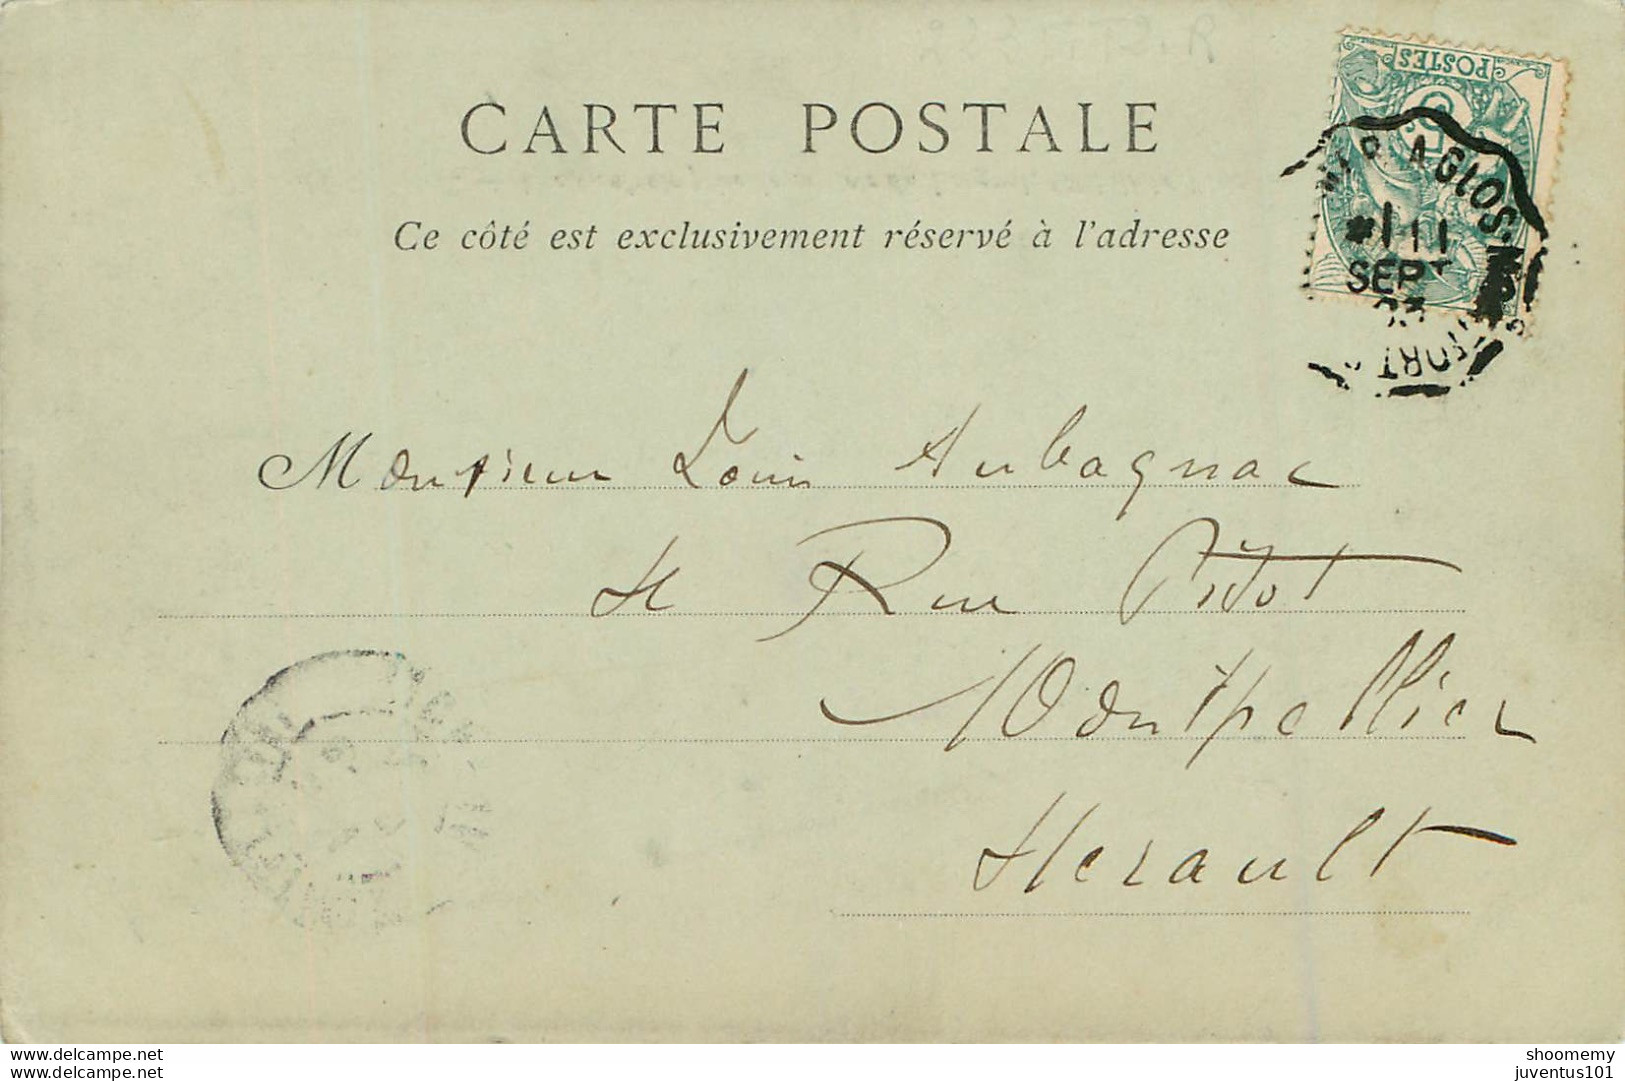 CARTE POSTALE
Ce côté est exclusivement réservé à l'adresse
POSTES
5
A GLOS
11
SEPT
03
Monsieur Louis Aubagnac
Rue Pitot
Montpellier
Herault
www.delcampe.net
www.delcampe.net
shoomemy
juventus101